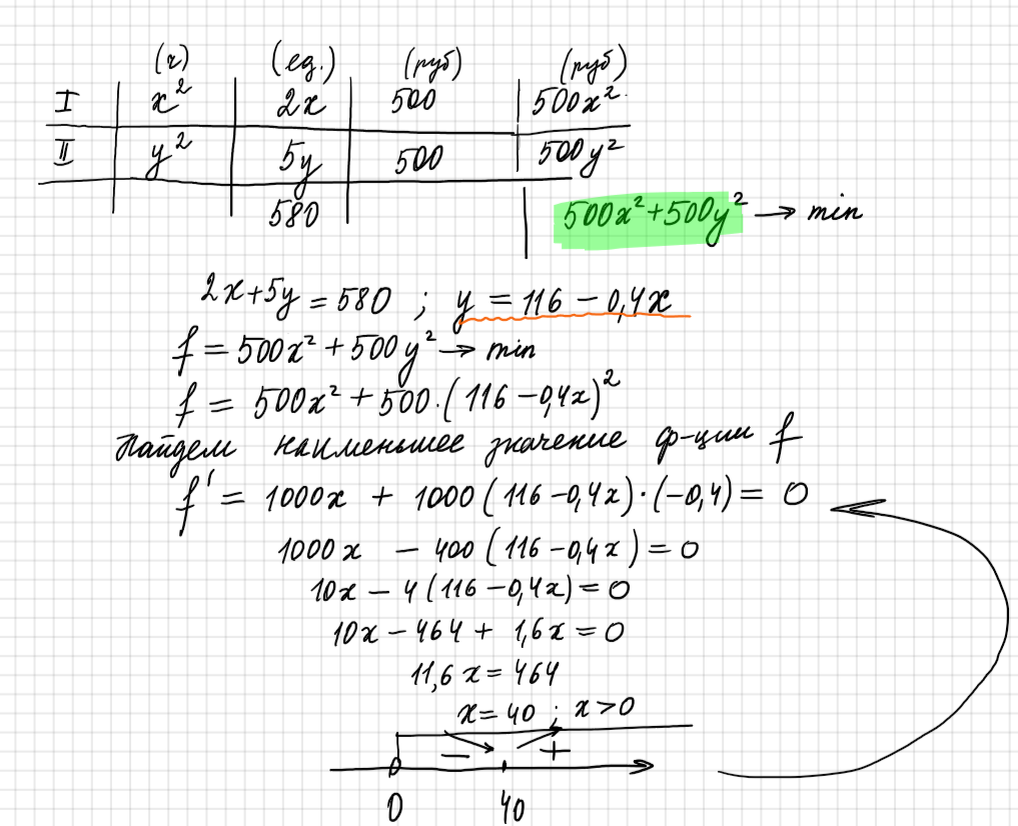 (ч) (ед.) (руб) (руб)
I x² 2x 500 500x²
II y² 5y 500 500y²
580 500x²+500y² → min
2x+5y = 580 ; y = 116 − 0,4x
f = 500x² + 500y² → min
f = 500x² + 500·(116 − 0,4x)²
Найдем наименьшее значение ф-ции f
f' = 1000x + 1000(116 − 0,4x)·(−0,4) = 0
1000x − 400(116 − 0,4x) = 0
10x − 4(116 − 0,4x) = 0
10x − 464 + 1,6x = 0
11,6x = 464
x = 40 ; x > 0
− +
0 40